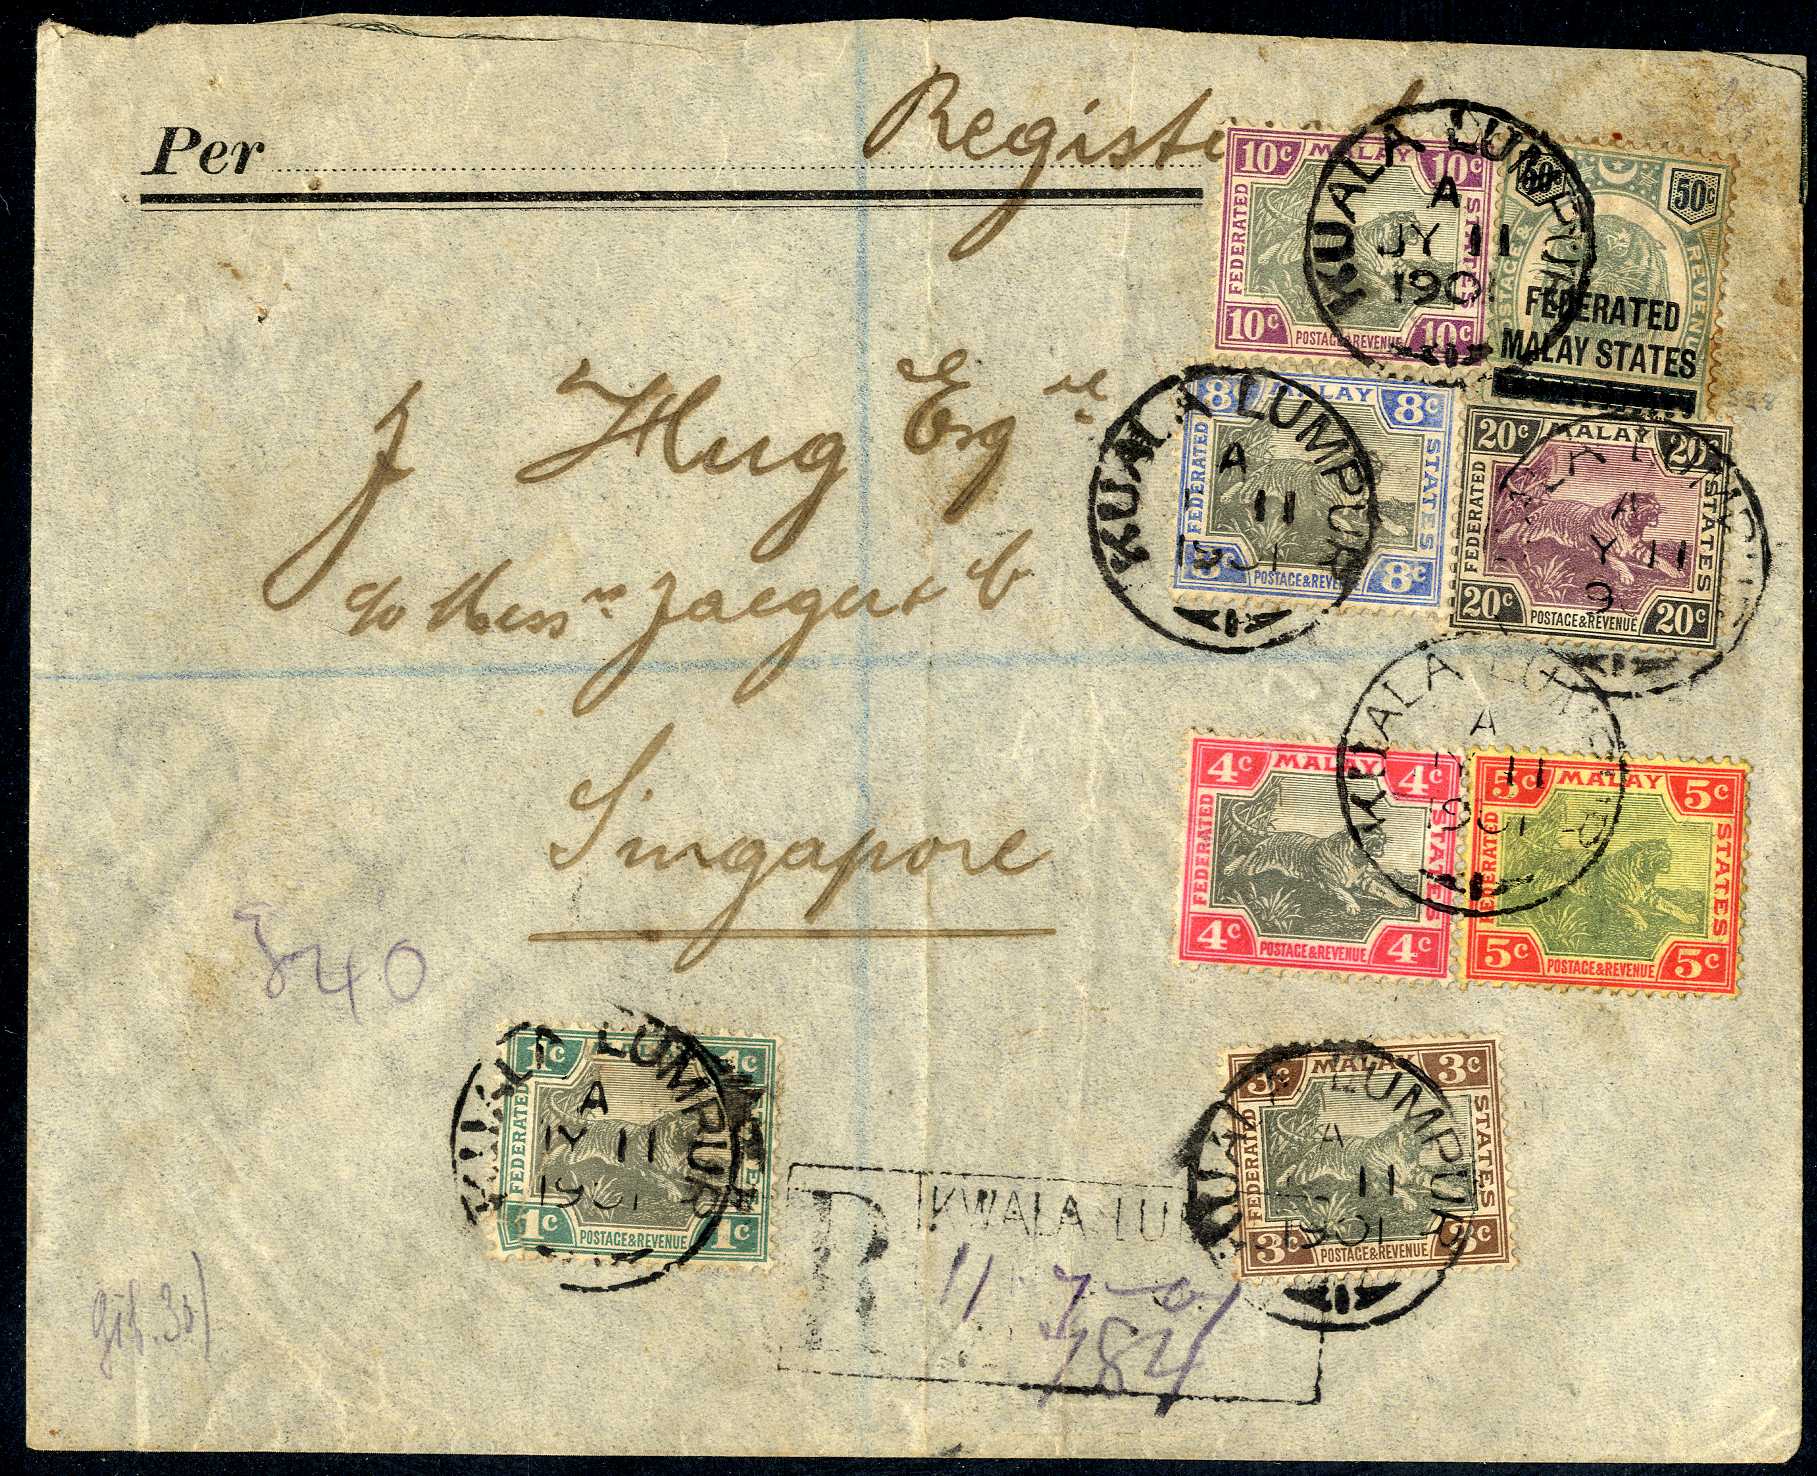 Per
Registered
10c MALAY 10c
FEDERATED STATES
10c POSTAGE & REVENUE 10c
KUALA LUMPUR
A
JY 11
190
50c 50c
POSTAGE & REVENUE
FEDERATED
MALAY STATES
8c MALAY 8c
FEDERATED STATES
8c POSTAGE & REVENUE 8c
KUALA LUMPUR
A
11
1901
20c MALAY 20c
FEDERATED STATES
20c POSTAGE & REVENUE 20c
A
Y 11
J Hug Esqre
c/o Messrs Jaeger & Co
Singapore
4c MALAY 4c
FEDERATED STATES
4c POSTAGE & REVENUE 4c
5c MALAY 5c
FEDERATED STATES
5c POSTAGE & REVENUE 5c
KUALA LUMPUR
A
11
1901
840
1c 1c
FEDERATED
1c POSTAGE & REVENUE 1c
KUALA LUMPUR
A
JY 11
1901
3c MALAY 3c
FEDERATED STATES
3c POSTAGE & REVENUE 3c
KUALA LUMPUR
A
11
1901
R KWALA LU
11-7-01
784